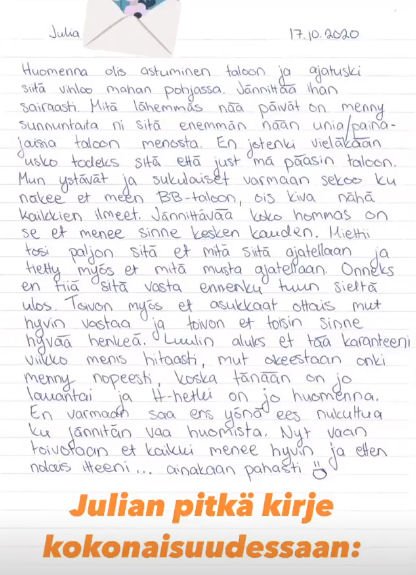 Julia 17.10.2020
Huomenna olis astuminen taloon ja ajatuski
siitä vinloo mahan pohjassa. Jännittää ihan
sairaasti. Mitä lähemmäs nää päivät on menny
sunnuntaita ni sitä enemmän nään unia/paina-
jaisia taloon menosta. En jotenki vieläkään
usko todeks sitä että just mä pääsin taloon.
Mun ystävät ja sukulaiset varmaan sekoo ku
näkee et meen BB-taloon, ois kiva nähä
kaikkien ilmeet. Jännittävää koko hommas on
se et menee sinne kesken kauden. Mietin
tosi paljon sitä et mitä siitä ajatellaan ja
tietty myös et mitä musta ajatellaan. Onneks
en tiiä sitä vasta ennenku tuun sieltä
ulos. Toivon myös et asukkaat ottais mut
hyvin vastaa ja toivon et toisin sinne
hyvää henkeä. Luulin aluks et tää karanteeni
viikko menis hitaasti, mut okeestaan onki
menny nopeesti, koska tänään on jo
lauantai ja H-hetki on jo huomenna.
En varmaan saa ens yönä ees nukuttua
ku jännitän vaa huomista. Nyt vaan
toivotaan et kaikki menee hyvin ja etten
nolais itteeni... ainakaan pahasti
Julian pitkä kirje
kokonaisuudessaan: